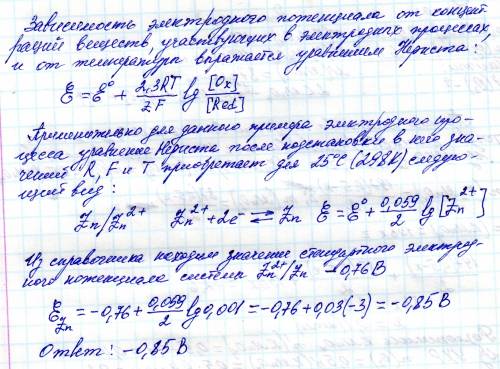 Зависимость электродного потенциала от концент
раций веществ, участвующих в электродных процессах,
и от температуры выражается уравнением Нернста:
E = E⁰ + 2,3RT/ZF lg [Ox]/[Red]
Применительно для данного примера электродного про-
цесса уравнение Нернста после подстановки в него зна-
чений R, F и T приобретает для 25°C (298K) следую-
щий вид:
Zn/Zn²⁺ Zn²⁺+2e⁻ ⇄ Zn E = E⁰ + 0,059/2 lg[Zn²⁺]
Из справочника находим значение стандартного электрод-
ного потенциала системы Zn²⁺/Zn -0,76 В
E Zn = -0,76 + 0,059/2 lg 0,001 = -0,76 + 0,03(-3) = -0,85 В
Ответ: -0,85 В